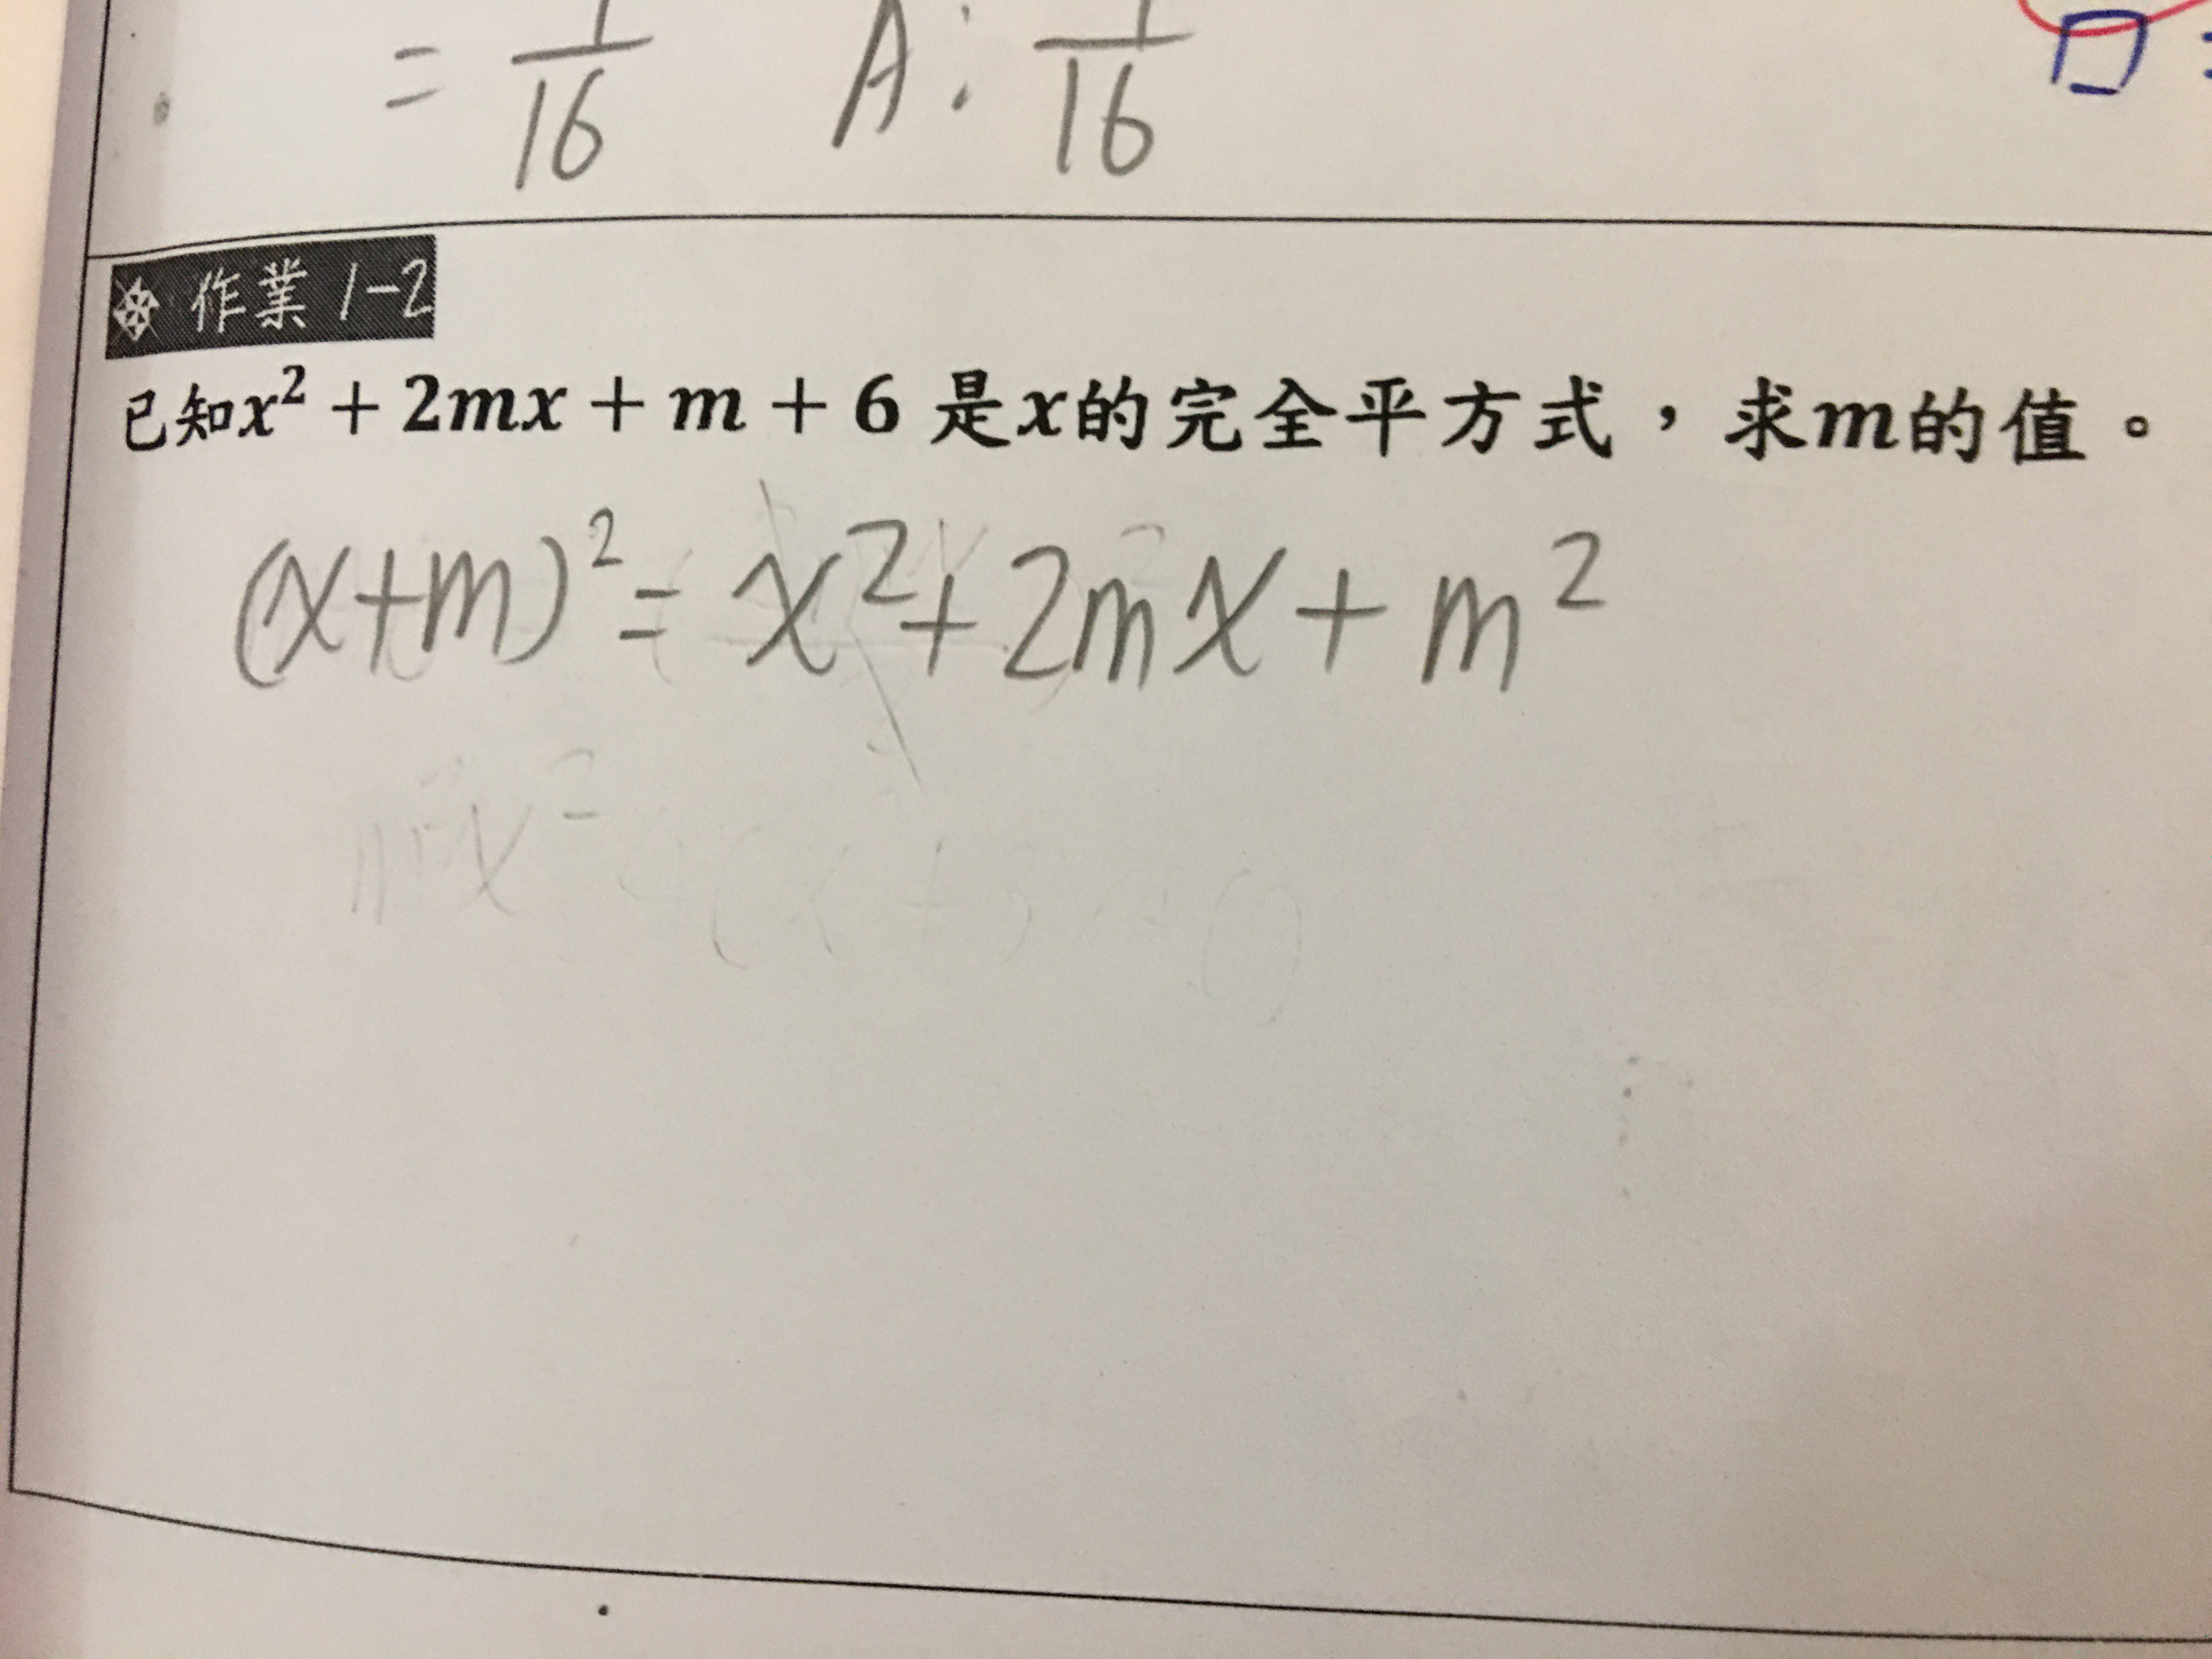 = 1/16 A: 1/16
作業 1-2
已知x² + 2mx + m + 6 是x的完全平方式，求m的值。
(x+m)² = x² + 2mx + m²